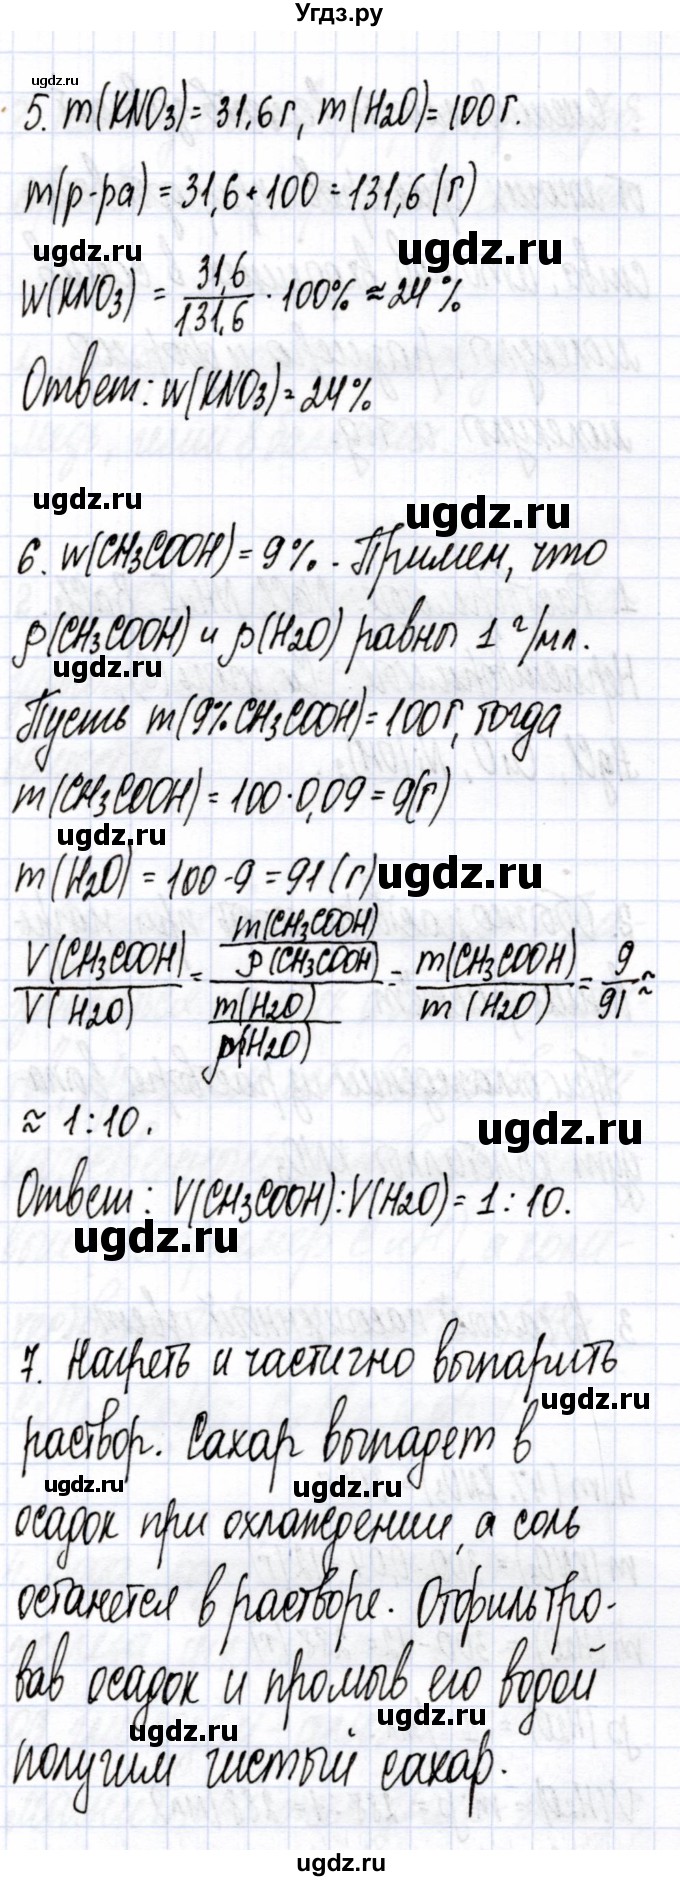 Угдз.ру
ugdz.ru
5. m(KNO3) = 31,6 г, m(H2O) = 100 г.
m(р-ра) = 31,6 + 100 = 131,6 (г)
ugdz.ru
ugdz.ru
W(KNO3) = 31,6/131,6 · 100% ≈ 24%
Ответ: w(KNO3) = 24%
ugdz.ru
ugdz.ru
6. w(CH3COOH) = 9%. Примем, что
ρ(CH3COOH) и ρ(H2O) равны 1 г/мл.
ugdz.ru
Пусть m(9% CH3COOH) = 100 г, тогда
m(CH3COOH) = 100 · 0,09 = 9(г)
ugdz.ru
m(H2O) = 100 - 9 = 91 (г)
ugdz.ru
V(CH3COOH)/V(H2O) = (m(CH3COOH)/ρ(CH3COOH))/(m(H2O)/ρ(H2O)) = m(CH3COOH)/m(H2O) = 9/91 ≈
≈ 1:10.
ugdz.ru
Ответ: V(CH3COOH):V(H2O) = 1:10.
ugdz.ru
7. Нагреть и частично выпарить
ugdz.ru
раствор. Сахар выпадет в
ugdz.ru
ugdz.ru
осадок при охлаждении, а соль
останется в растворе. Отфильтро-
вав осадок и промыв его водой
ugdz.ru
ugdz.ru
получим чистый сахар.
ugdz.ru